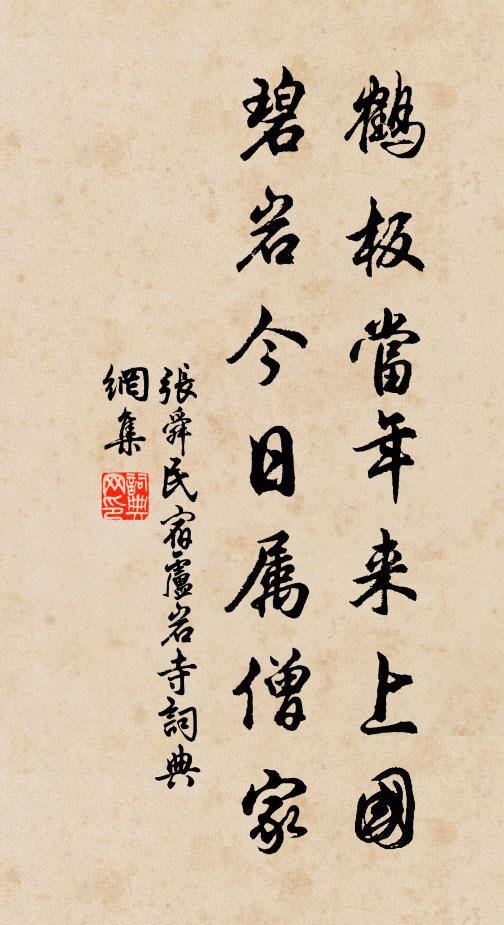 鶴板當年来上國
碧岩今日属僧家
張舜民宿盧岩寺詞典
網集
詞典網印